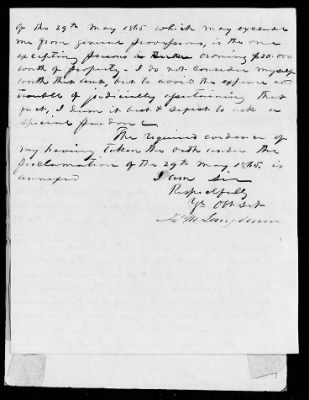 of the 29th May 1865 which may exclude
me from general provisions, is the one
excepting persons owning $20.000
worth of property - I do not consider myself
worth that sum, but to avoid the expense and
trouble of judicially ascertaining that
fact, I deem it best & safest to ask a
special pardon
The required evidence of
my having taken the oath under the
proclamation of the 29th May 1865. is
annexed
I am Sir
Respectfully
Yr Obt Svt